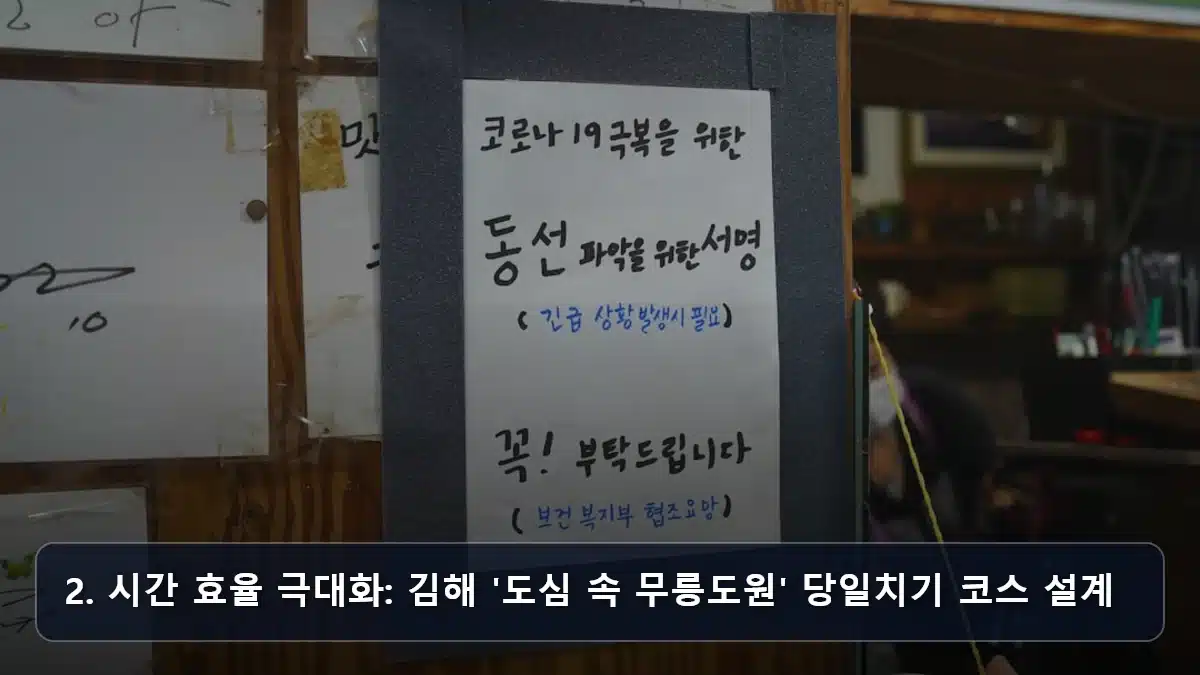 코로나 19 극복을 위한
동선 파악을 위한 서명
( 긴급 상황발생시 필요)
꼭! 부탁드립니다
( 보건복지부 협조요망)
10
2. 시간 효율 극대화: 김해 '도심 속 무릉도원' 당일치기 코스 설계